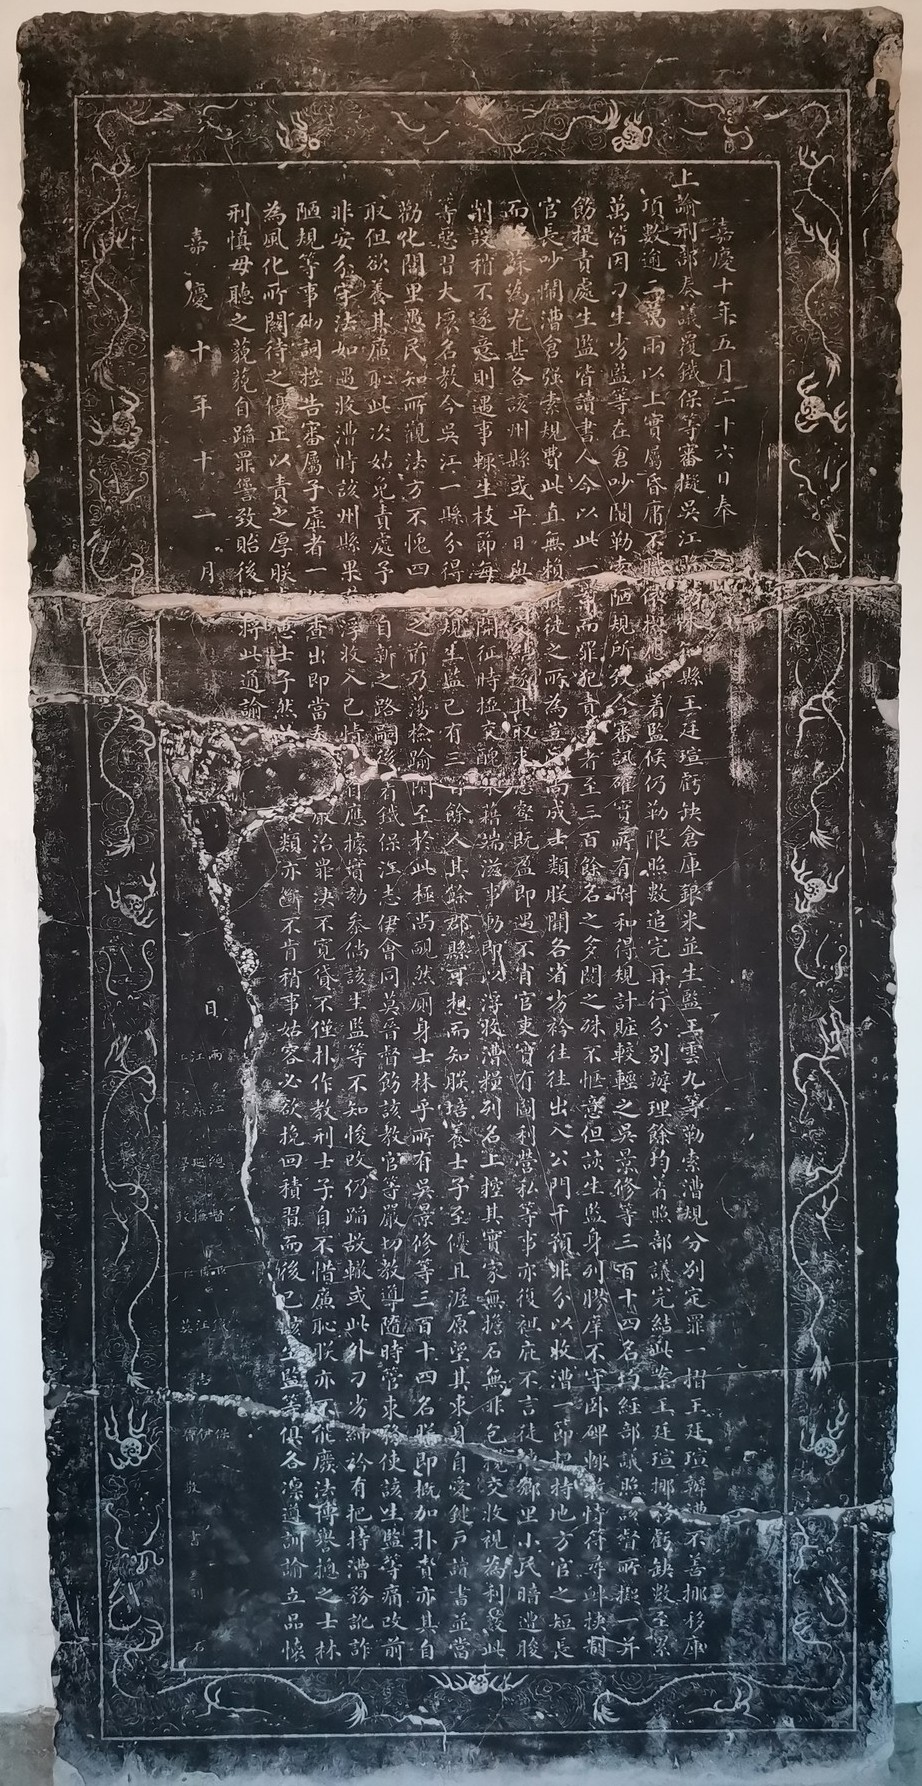 嘉慶十年五月二十六日奉
上諭刑部奏議覆鐵保等審擬吳江縣知縣王廷瑄虧缺倉庫銀米並生監王雲九等勒索漕規分別定罪一摺王廷瑄辦漕不善挪移庫
項數逾二萬兩以上實屬昏庸不職著監候仍勒限照數追完再行分別辦理餘均著照部議完結此案王廷瑄挪移虧缺數至累
萬皆因刁生劣監等在倉吵鬧勒索陋規所致今審訊確實所有附和得規計贓較輕之吳景修等三百十四名均經部議照該督所擬一并
飭提責處生監皆讀書人今以此一案而罪犯責處者至三百餘名之多閱之殊不愜意但該生監身列膠庠不守卧碑輒敢恃符尋衅挾制
官長吵鬧漕倉強索規費此直無賴棍徒之所為豈尚成士類朕聞各省劣衿往往出入公門干預非分以收漕一節把持地方官之短長
而江蘇為尤甚各該州縣或平日與交結遂其取求慾壑既盈即遇不肖官吏實有圖利營私等事亦復袒庇不言徒使鄉里小民暗遭朘
削設稍不遂意則遇事輒生枝節每開征時挜交醜米藉端滋事動即以浮收漕糧列名上控其實家無擔石無非包攬交收視為利藪此
等惡習大壞名教今吳江一縣分得漕規生監已有三百餘人其餘郡縣可想而知朕培養士子至優且渥原望其束身自愛鍵戶讀書並當
勸化閭里愚民知所觀法方不愧四民之首乃蕩檢踰閑至於此極尚靦然廁身士林乎所有吳景修等三百十四名朕即概加扑責亦其自
取但欲養其廉恥此次姑免責處予以自新之路嗣後著鐵保汪志伊會同莫晉督飭該教官等嚴切教導隨時管束務使該生監等痛改前
非安分守法如遇收漕時該州縣果有浮收入己情事自應據實劾參倘該生監等不知悛改仍蹈故轍或此外刁劣紳衿有把持漕務訛詐
陋規等事砌詞控告審屬子虛者一經查出即當嚴治罪決不寬貸不僅扑作教刑士子自不惜廉恥朕亦不能廢法博譽摠之士林
為風化所關待之優正以責之厚朕惠士子然敗類亦斷不肯稍事姑容必欲挽回積習而後已該生監等俱各凜遵訓諭立品懷
刑慎毋聽之藐藐自蹈罪譴致貽後悔將此通諭
嘉慶十年十一月 日
兩江總督 鐵保
江蘇巡撫 汪志伊
江蘇學政 莫晉
敬書刻石